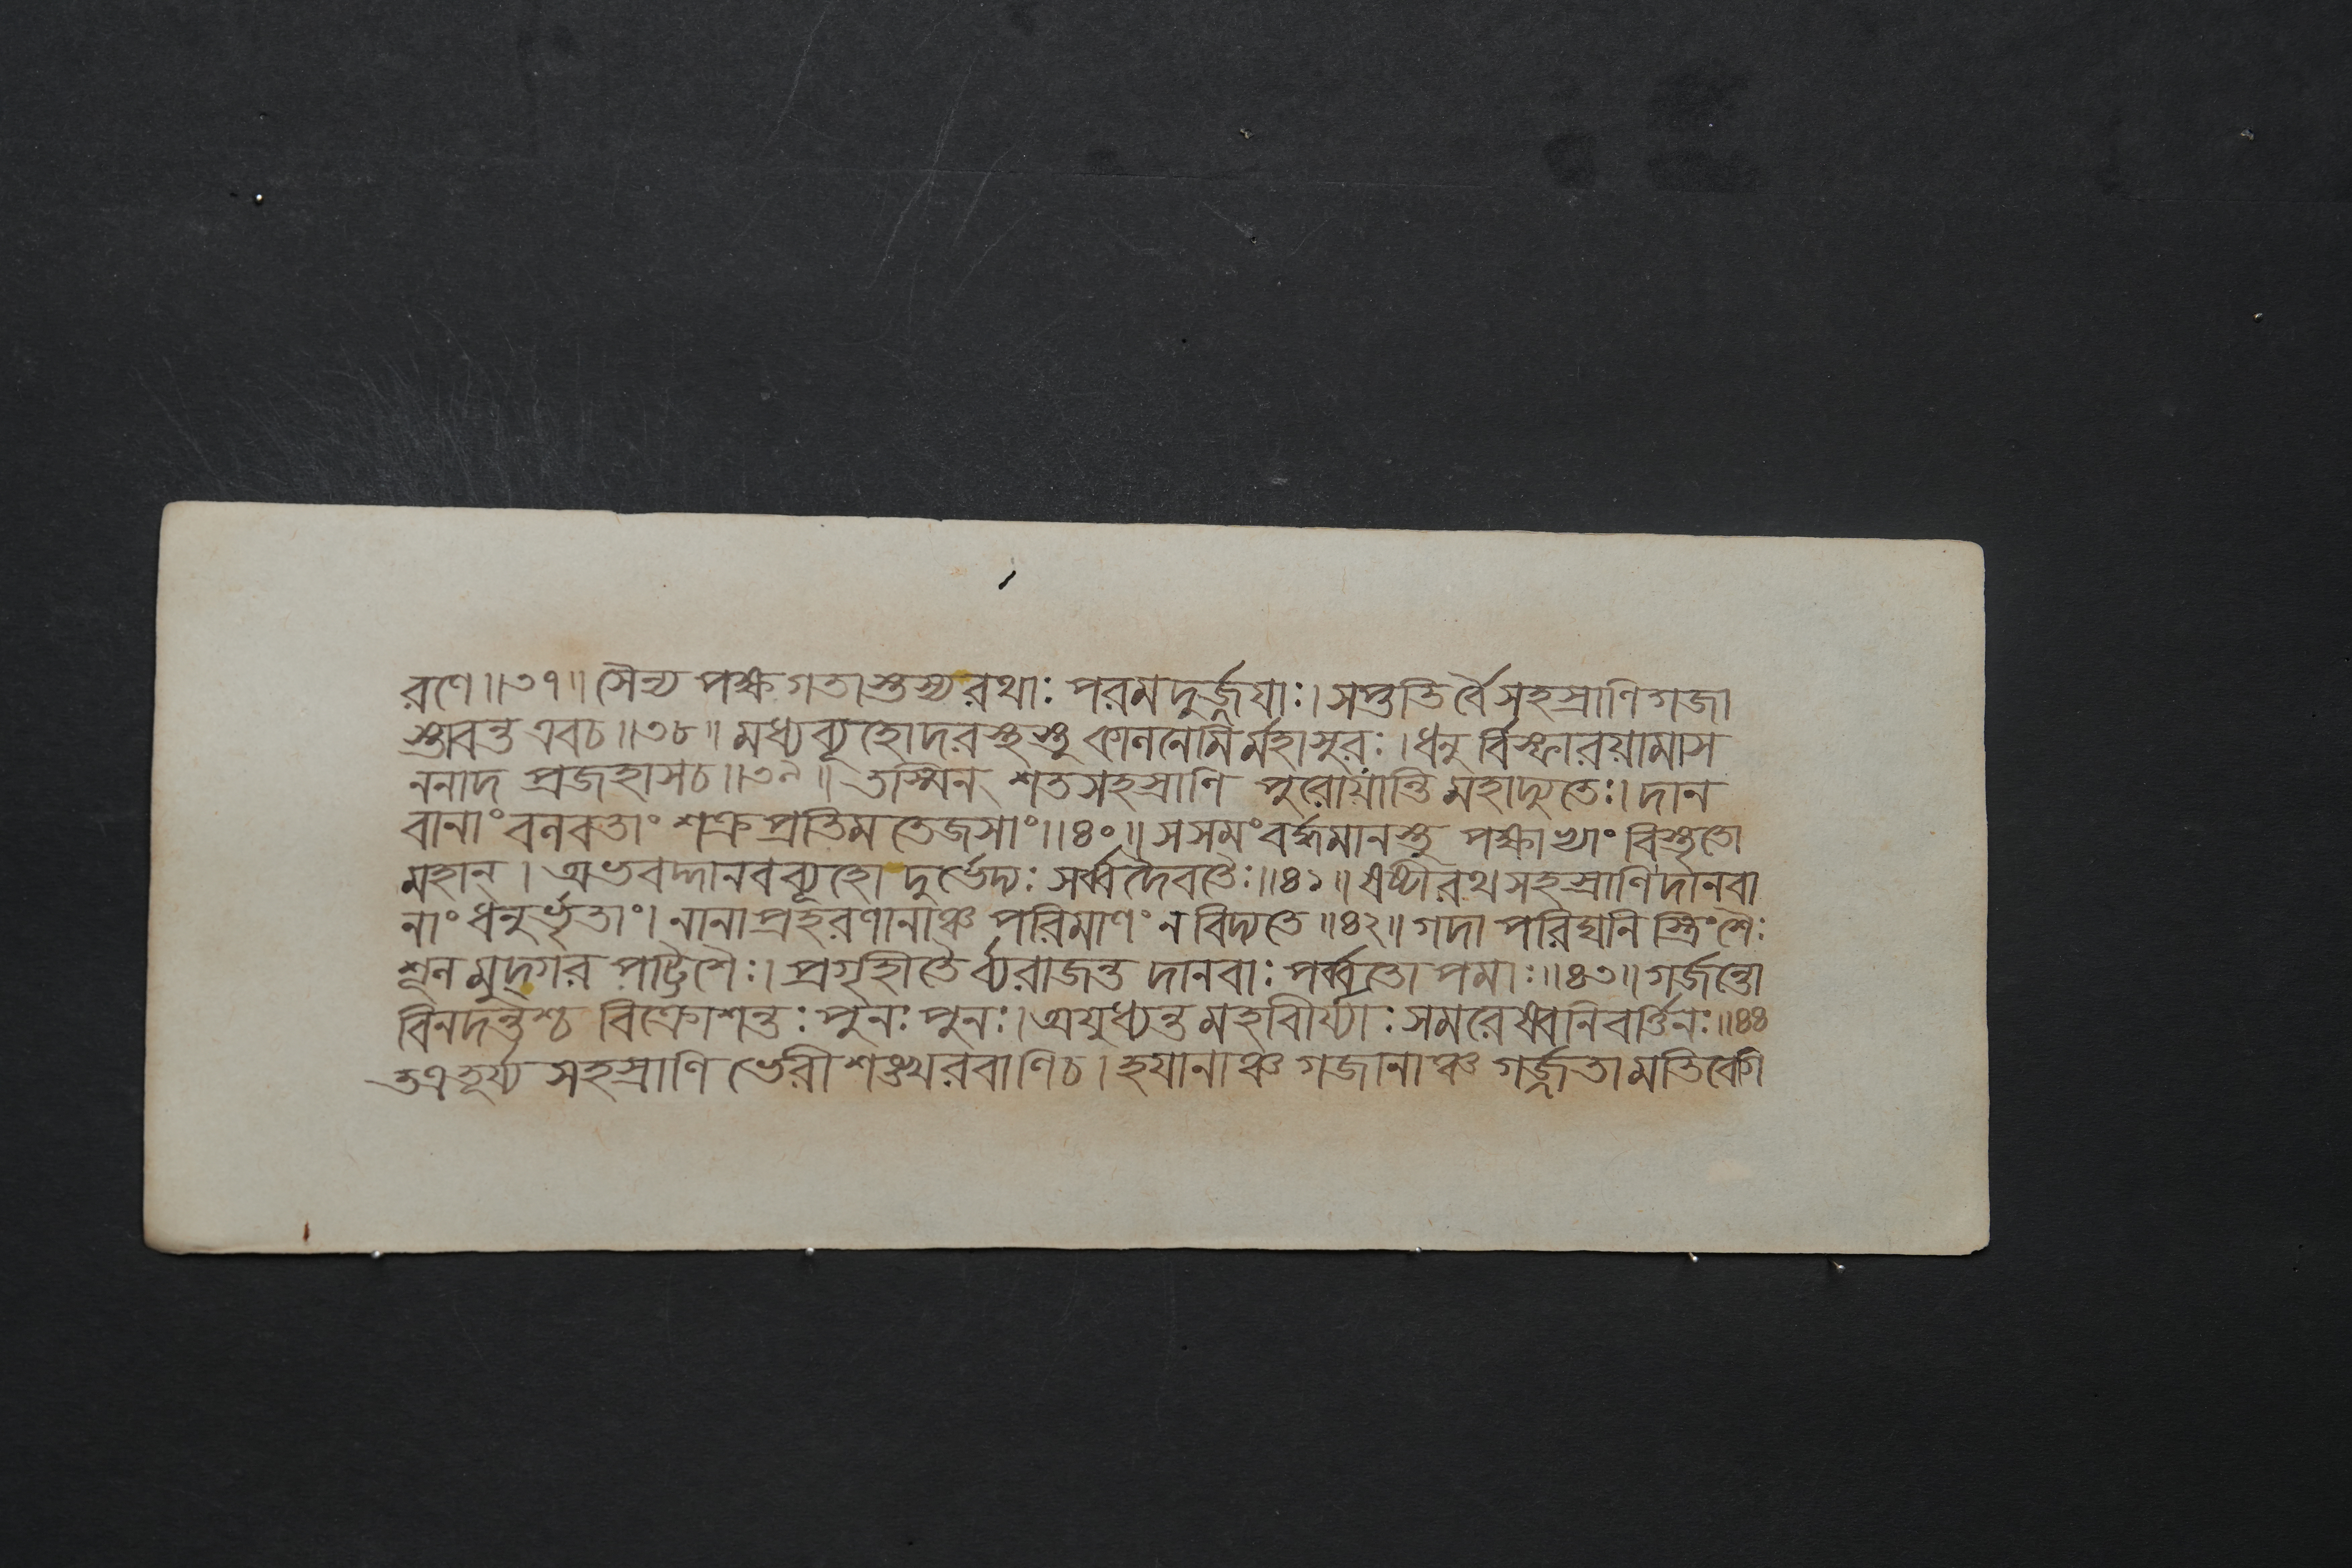 রণে॥৩৭॥ সৈন্য পক্ষ গতাস্তস্য রথাঃ পরমদুর্জ্জয়াঃ। সপ্ততির্বৈ সহস্রাণি গজা
স্তাবন্ত এবচ॥৩৮॥ মধ্য ব্যূহোদরস্থস্তু কালনেমির্মহাসুরঃ। ধনু র্বিস্ফারয়ামাস
ননাদ প্রজহাসচ॥৩৯॥ তস্মিন্ শতসহস্রাণি পুরোযান্তি মহাদ্যুতেঃ। দান
বানাং বলবতাং শক্রপ্রতিম তেজসাং॥৪০॥ স সমংবর্দ্ধমানস্তু পক্ষাভ্যাং বিস্তৃতো
মহান্। অভবদ্দানবব্যূহো দুর্ভেদ্যঃ সর্ব্বদৈবতৈঃ॥৪১॥ ষষ্টীরথ সহস্রাণি দানবা
নাং ধনুর্ভৃতাং। নানাপ্রহরণানাঞ্চ পরিমাণং ন বিদ্যতে॥৪২॥ গদা পরিঘনি স্ত্রিংশৈঃ
শূল মুদ্গর পট্টিশৈঃ। প্রগৃহীতৈ র্ব্যরাজন্ত দানবাঃ পর্ব্বতোপমাঃ॥৪৩॥ গর্জন্তো
বিনদন্তশ্চ বিক্রোশন্তঃ পুনঃ পুনঃ। অযুধ্যন্ত মহবীর্য্যাঃ সমরেষ্বনিবর্ত্তিনঃ॥৪৪
তত্র তূর্য্য সহস্রাণি ভেরী শঙ্খরবাণিচ। হয়ানাঞ্চ গজানাঞ্চ গর্জ্জতামতিবেগি